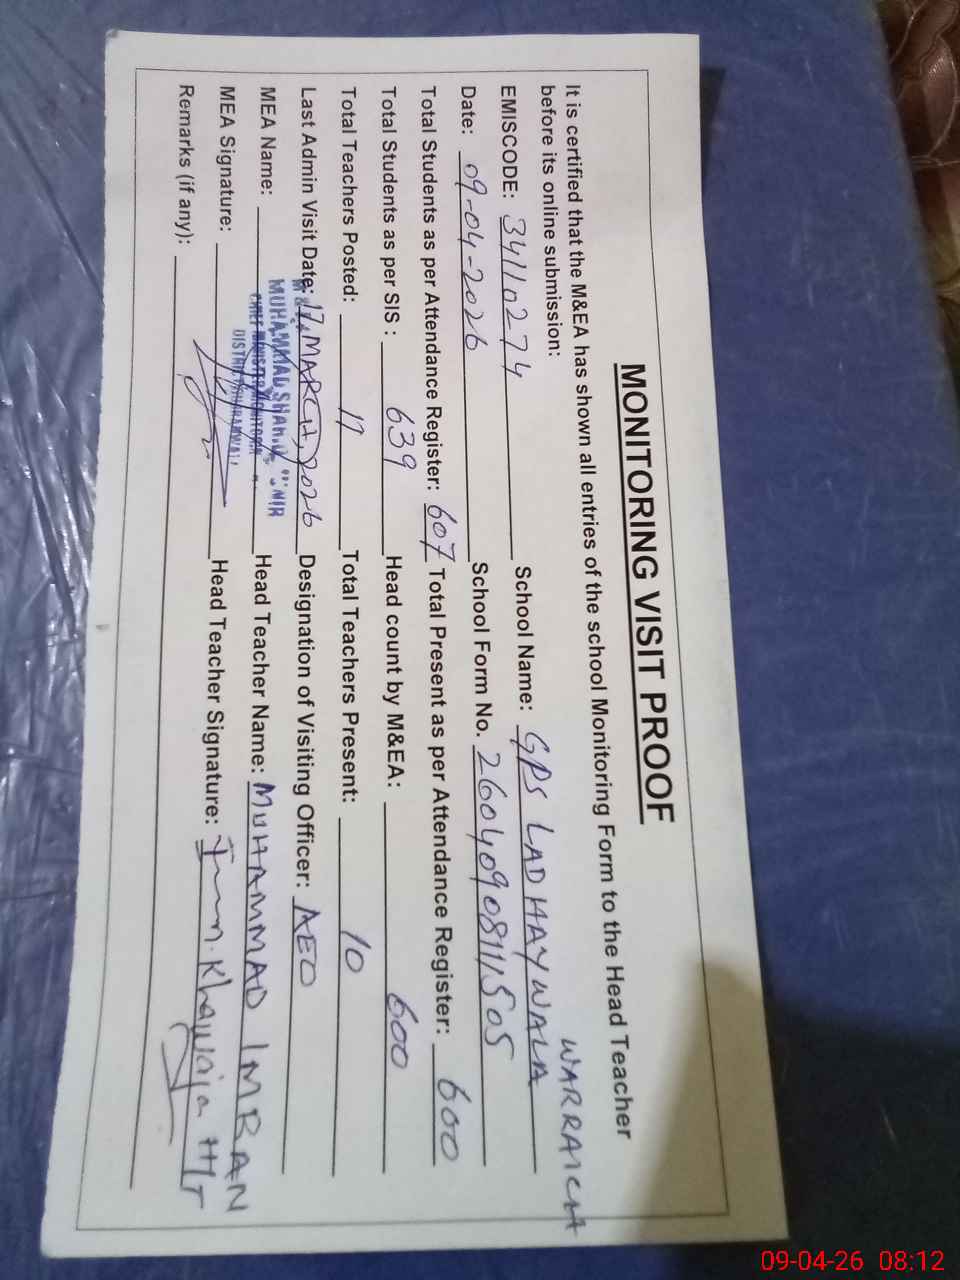 MONITORING VISIT PROOF
It is certified that the M&EA has shown all entries of the school Monitoring Form to the Head Teacher
before its online submission:
WARRAICH
EMISCODE: 34110274 School Name: GPS LADHAYWALA
Date: 09-04-2026 School Form No. 26040908111505
Total Students as per Attendance Register: 607 Total Present as per Attendance Register: 600
Total Students as per SIS : 639 Head count by M&EA: 600
Total Teachers Posted: 17 Total Teachers Present: 10
Last Admin Visit Date: 17. MARCH, 2026 Designation of Visiting Officer: AEO
MEA Name: MUHAMMAD Head Teacher Name: MUHAMMAD IMRAN
MEA Signature: Head Teacher Signature: Khawaja HT
Remarks (if any):
09-04-26 08:12